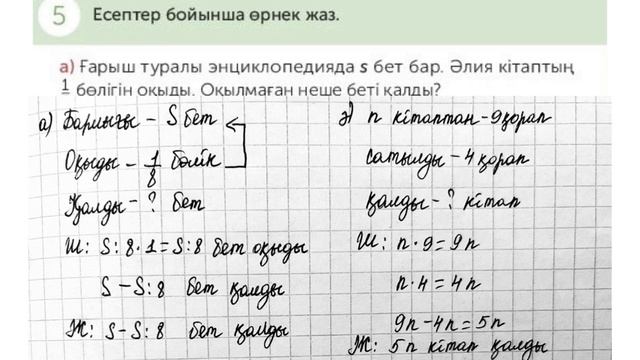 5 Есептер бойынша өрнек жаз.
а) Ғарыш туралы энциклопедияда s бет бар. Әлия кітаптың
1 бөлігін оқыды. Оқылмаған неше беті қалды?
а) Барлығы – S бет
Оқыды – 1/8 бөлік
Қалды – ? бет
Ш: S:8·1=S:8 бет оқыды
S – S:8 бет қалды
Ж: S–S:8 бет қалды
ә) n кітаптан – 9 қорап
сатылды – 4 қорап
қалды – ? кітап
Ш: n·9=9n
n·4=4n
9n–4n=5n
Ж: 5n кітап қалды